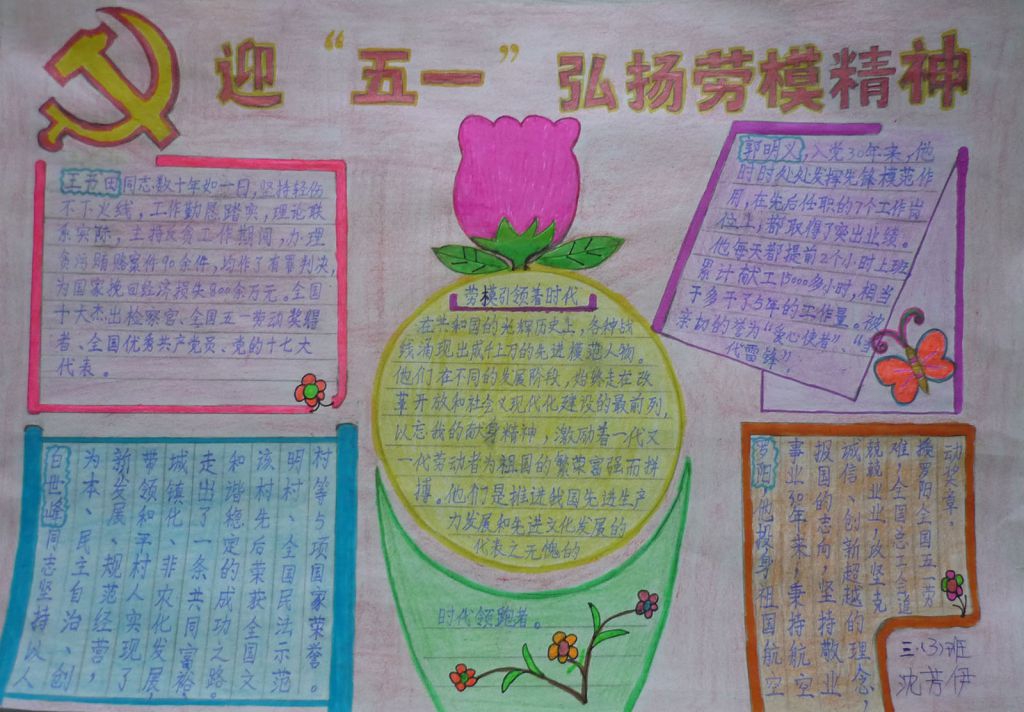 迎“五一”弘扬劳模精神
王书田同志数十年如一日,坚持轻伤
不下火线,工作勤恳踏实,理论联
系实际,主持反贪工作期间,办理
贪污贿赂案件90余件,均作了有罪判决,
为国家挽回经济损失800余万元。全国
十大杰出检察官、全国五一劳动奖章得
者、全国优秀共产党员、党的十七大
代表。
劳模引领着时代
在共和国的光辉历史上,各种战
线涌现出成千上万的先进模范人物。
他们在不同的发展阶段,始终走在改
革开放和社会义现代化建设的最前列,
以忘我的献身精神,激励着一代又
一代劳动者为祖国的繁荣富强而拼
搏。他们是推进我国先进生产
力发展和先进文化发展的
代表之无愧的
时代领跑者。
郭明义,入党30年来,他
时时处处发挥先锋模范作
用,在先后任职的7个工作岗
位上,都取得了突出业绩。
他每天都提前2个小时上班
累计献工15000多小时,相当
于多干了5年的工作量。被
亲切的誉为“爱心使者”、“当
代雷锋”。
白世峰同志坚持以人
为本、民主自治、创
新发展、规范经营,
带领和平村人实现了
城镇化、非农化发展,
走出了一条共同富裕
和谐稳定的成功之路。
该村先后荣获全国文
明村、全国民法示范
村等与项国家荣誉。
罗阳,他投身祖国航空
事业30年来,秉持航空
报国的志向,坚持敬业
诚信、创新超越的理念,
兢兢业业,攻坚克
难,全国总工会追
授罗阳全国五一劳
动奖章
三.(3)班
沈芳伊